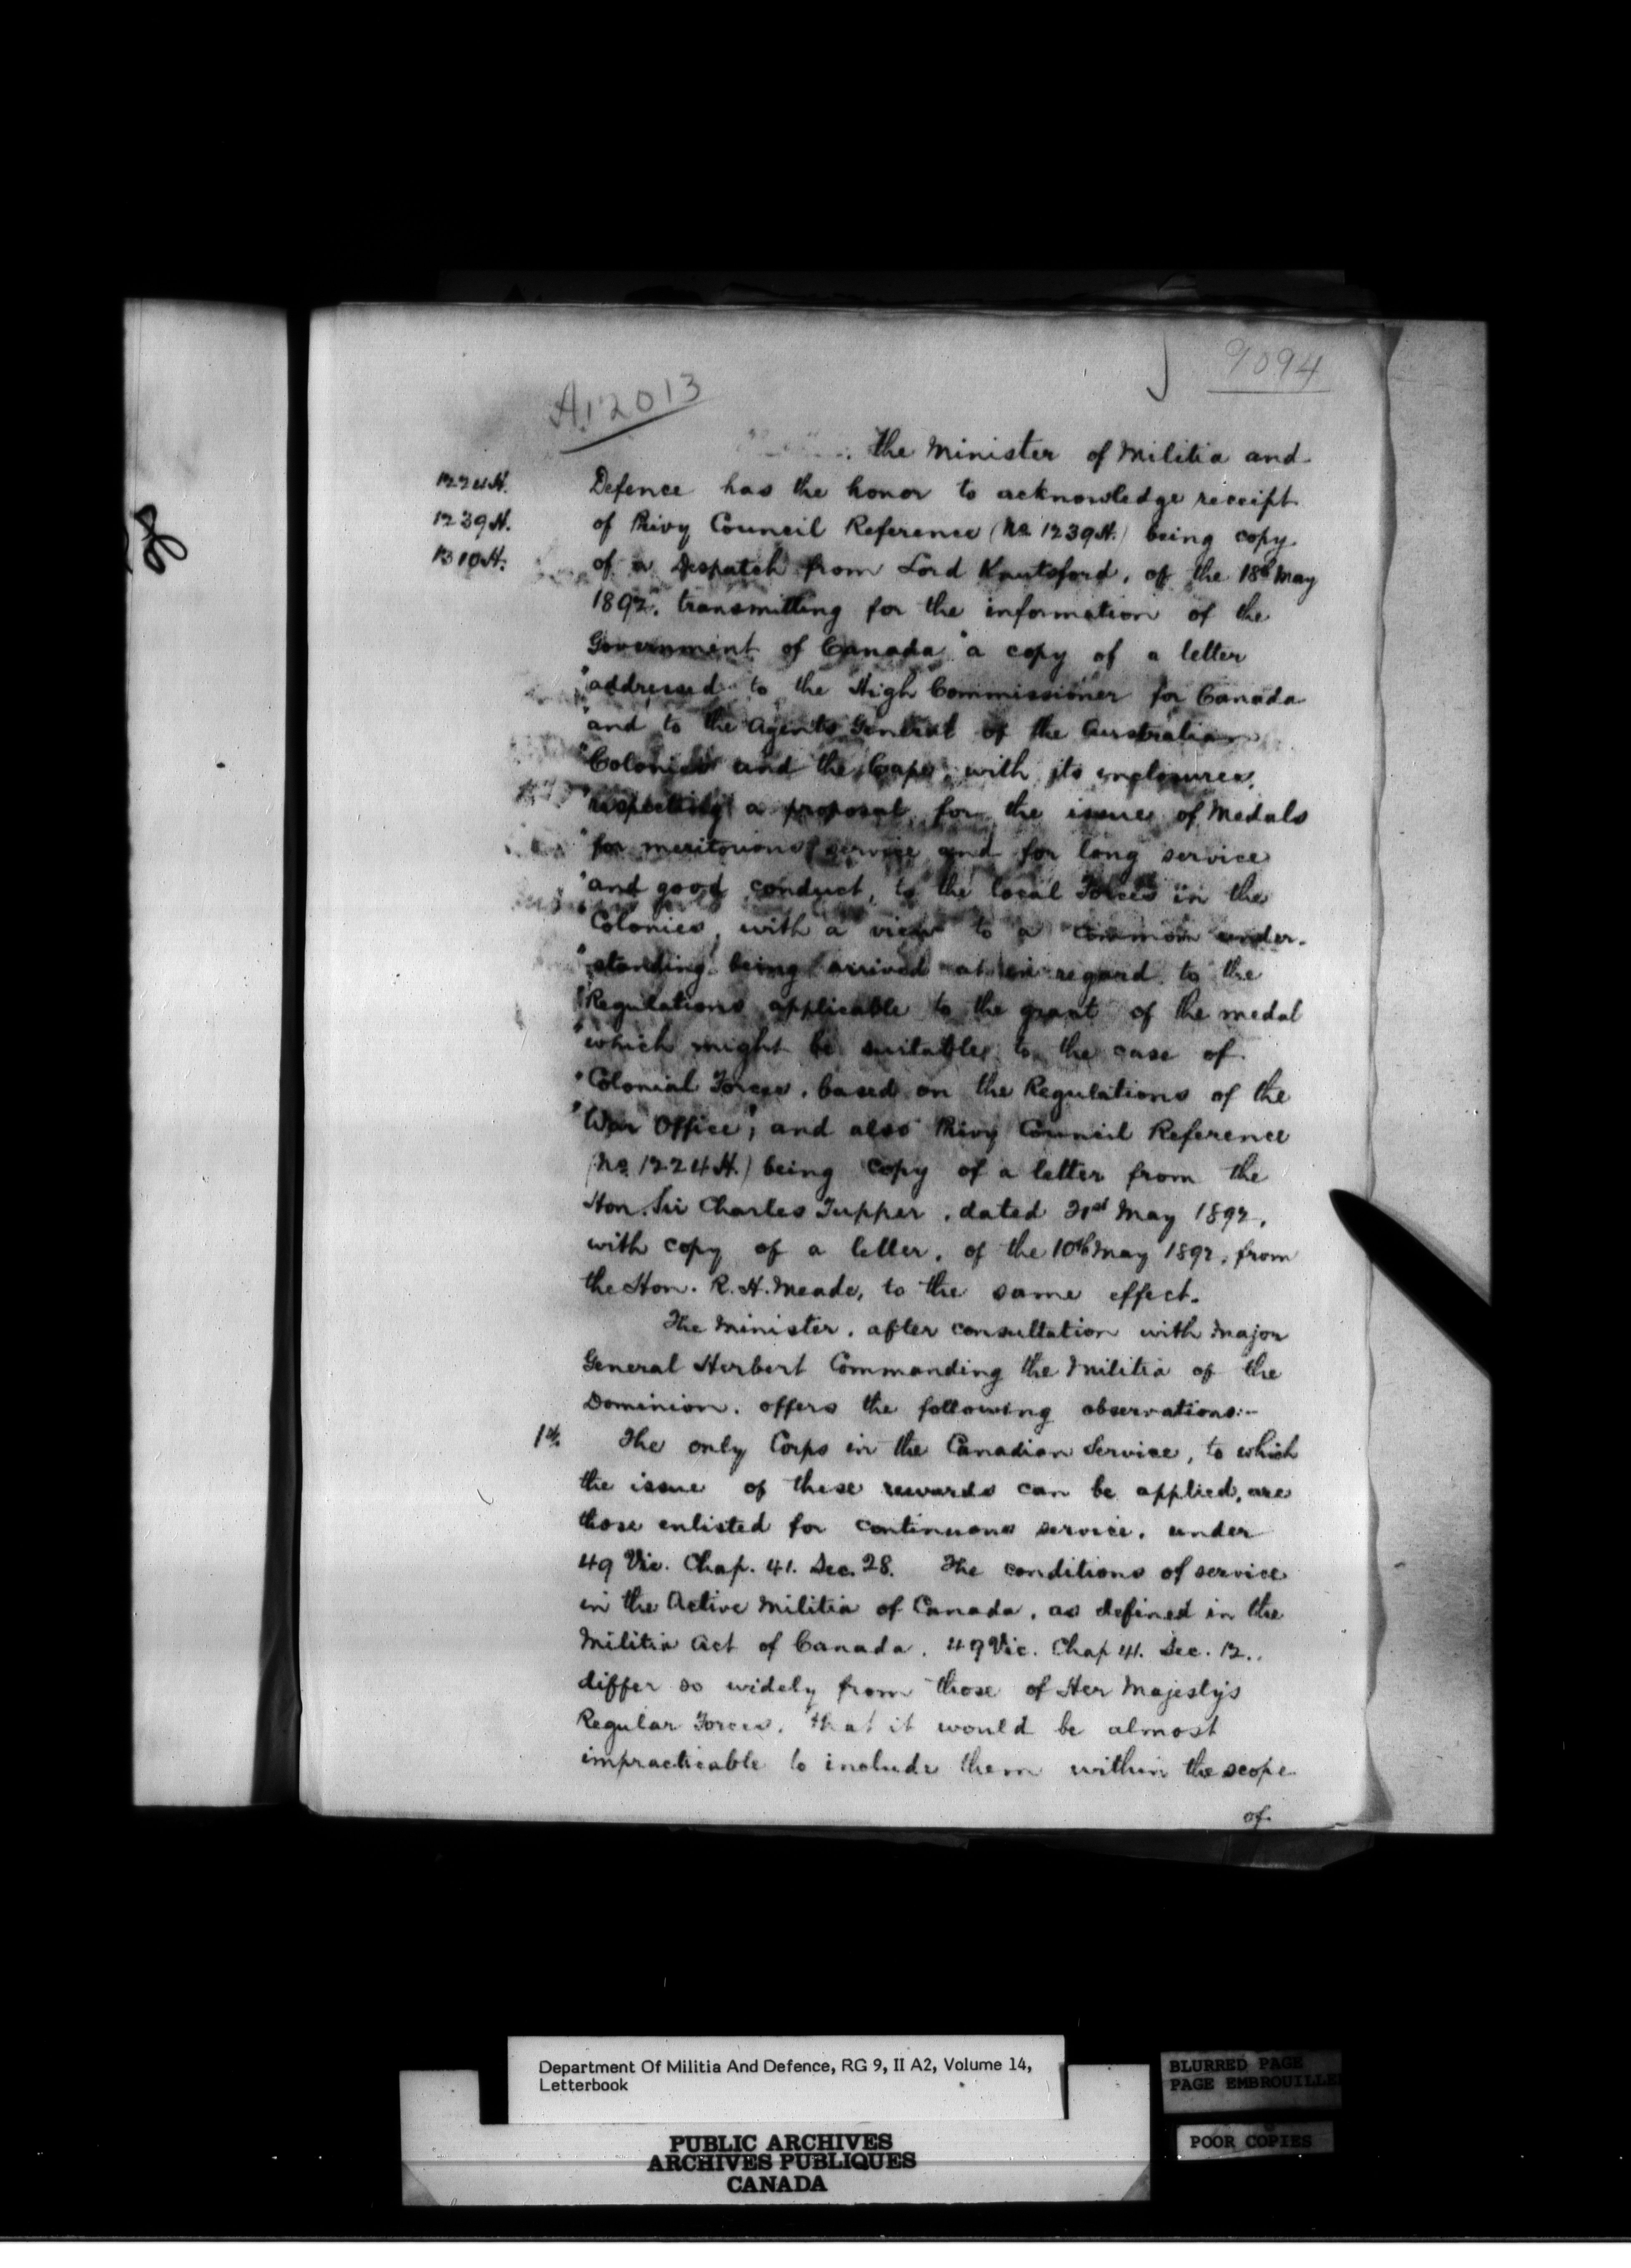 9094
A12013
The Minister of Militia and
1224H. Defence has the honor to acknowledge receipt
1239H. of Privy Council Reference (No. 1239H.) being copy
1310H. of a Despatch from Lord Knutsford, of the 18th May
1892, transmitting for the information of the
Government of Canada "a copy of a letter
"addressed to the High Commissioner for Canada
"and to the Agents General of the Australian
"Colonies and the Cape, with its enclosures,
"respecting a proposal for the issue of Medals
"for meritorious service and for long service
"and good conduct, to the local Forces in the
"Colonies, with a view to a common under-
"standing being arrived at in regard to the
"Regulations applicable to the grant of the medal
"which might be suitable to the case of
"Colonial Forces, based on the Regulations of the
"War Office", and also Privy Council Reference
(No. 1224H.) being copy of a letter from the
Hon. Sir Charles Tupper, dated 21st May 1892,
with copy of a letter, of the 10th May 1892, from
the Hon. R. H. Meade, to the same effect.
The Minister, after consultation with Major
General Herbert Commanding the Militia of the
Dominion, offers the following observations:-
1st. The only Corps in the Canadian Service, to which
the issue of these rewards can be applied, are
those enlisted for continuous service, under
49 Vic. Chap. 41. Sec. 28. The conditions of service
in the Active Militia of Canada, as defined in the
Militia Act of Canada, 49 Vic. Chap 41. Sec. 12.,
differ so widely from those of Her Majesty's
Regular Forces, that it would be almost
impracticable to include them within the scope
of
Department Of Militia And Defence, RG 9, II A2, Volume 14,
Letterbook
BLURRED PAGE
PAGE EMBROUILLE
POOR COPIES
PUBLIC ARCHIVES
ARCHIVES PUBLIQUES
CANADA